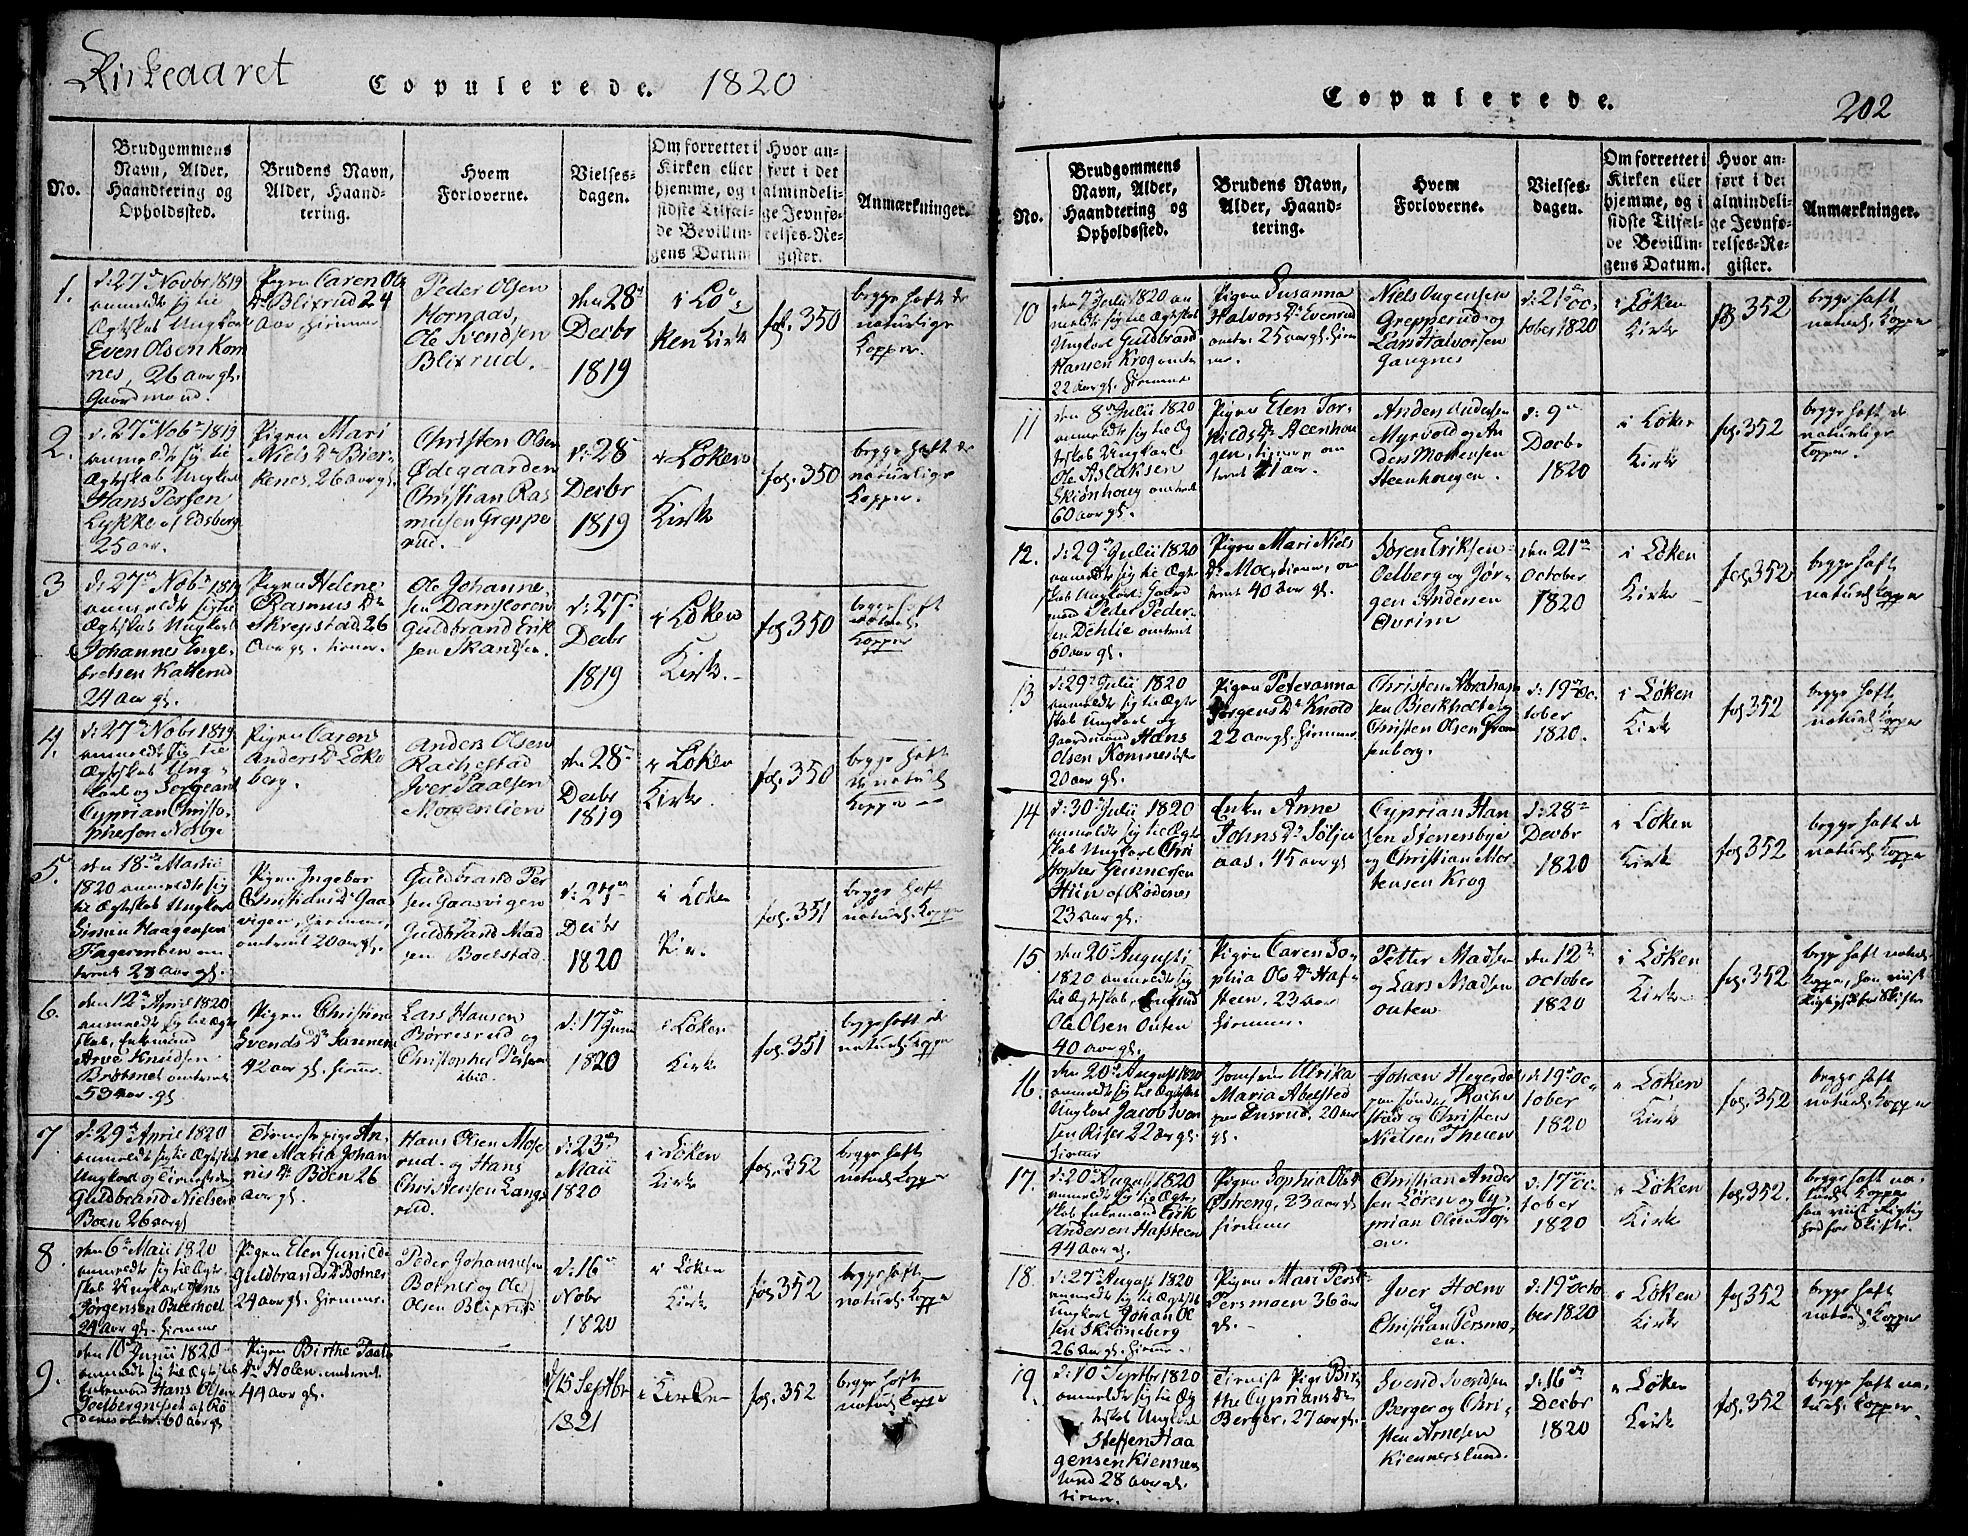 Kirkeaaret
Copulerede. 1820
No.
Brudgommens
Navn, Alder,
Haandtering og
Opholdssted.
Brudens Navn,
Alder, Haand-
tering.
Hvem
Forloverne.
Vielses-
dagen.
Om forrettet i
Kirken eller
hjemme, og i
sidste Tilfæl-
de Bevillin-
gens Datum
Hvor an-
ført i det
almindeli-
ge Jevnfø-
relses-Re-
gister.
Anmærkninger.
1.
d: 27 Novbr 1819
anmeldt sig til
Ægteskab Ungkarl
Even Olsen Kom
nes, 26 aar gl.
Gaardmand.
Pigen Caren Ols
Dr Blixrud 24
Aar
Peder Olsen
Hornaas,
Ole Svendsen
Blixrud.
den 28
Decbr
1819
i Lø
ken Kirke
fol. 350
begge haft de
naturlige
Kopper
2.
d: 27 Nobr 1819
anmeldt sig til
Ægteskab Ungkarl
Hans Persen
Lykke af Edsberg
25 aar.
Pigen Mari
Niels Dr Bier-
kenes, 26 aar gl.
Christen Olsen
Ødegaarden
Christian Ras
musen Greppe
rud.
d: 28
Decbr
1819
i Løken
Kirke
fol. 350
begge haft de
naturlige
Kopper.
3
d: 27 Nobr 1819
anmeldt sig til
Ægteskab Ungkarl
Johannes Enge-
bretsen Katterud
24 Aar gl.
Pigen Helene
Rasmus Dr
Skrepstad 26
Aar gl.
Ole Johanne-
sen Damfloren
Guldbrand Erik
sen Skandsen.
d: 27
Decbr
1819
i Løken
Kirke.
fol. 350
begge haft
naturl.
Kopper
4.
d: 27 Nobr 1819
anmeldt sig til
Ægteskab Ung-
karl og Sergeant
Cyprian Christo-
phersen Nosbye
Pigen Caren
Anders Dr Løke
berg.
Anders Olsen
Rachestad
Iver Paalsen
Morgenlien
den 28
Decbr
1819
i Løken
Kirke.
fol. 350
begge haft
de naturl.
Kopper
5.
den 18 Martii
1820 anmeldt sig
til Ægteskab Ungkarl
Simen Haagensen
Fagermoen om
trent 28 aar gl.
Pigen Ingebor
Christians Dr Gaas
vigen,
omtrent 20 aar gl.
Guldbrand Per
sen Gaasvigen
Guldbrand Mad
sen Boelstad.
Decbr
1820
i Løken
fol. 351
begge haft
naturl. Kopper
6.
den 12 April 1820
anmeldt sig til Ægte
skab, Enkemand
Arve Knudsen
omtrent
53 aar gl
Pigen Christine
Svends Dr
42 aar gl.
Lars Hansen
Børresrud og
Christopher
ibid.
d: 17 Juni
1820
i Løken
Kirke
fol. 351
begge haft de
naturl. Kopper
7.
d: 29 April 1820
anmeldt sig til Ægteskab
Ungkarl og
Guldbrand Nielsen
Boen 26 aar gl
An-
ne Maria Johan
nis Dr Boen 26
Aar gl.
Hans Olsen Mose
rud og Hans
Christensen Langs
rud.
d: 23
Maii
1820
i Løken
Kirke
fol. 352
begge haft
naturl. Kopper
8.
den 6 Maii 1820
anmeldt sig til Ægte
skab Ungkarl Jens
Jørgensen Bierholt
24 aar gl.
Pigen Elen Gunilde
Guldbrands Dr Botner
24 aar gl.
Peder Johannesen
Botner og Ole
Olsen Blixrud
d: 16
Nobr
1820
i Løken
Kirke
fol. 352
begge haft
naturl. Kopper
9.
den 10 Junii 1820
anmeldt sig til Ægteskab
Enkemand Hans Olsen
af Rø
denes 60 aar gl
Pigen Birthe Paals
Dr Holen omtrent
44 aar gl.
d. 15 Septbr
1821
i Kirken
fol. 352
begge haft
naturl. Kopper
Copulerede.
202
No.
Brudgommens
Navn, Alder,
Haandtering og
Opholdssted.
Brudens Navn,
Alder, Haand-
tering.
Hvem
Forloverne.
Vielses-
dagen.
Om forrettet i
Kirken eller
hjemme, og i
sidste Tilfæl-
de Bevillin-
gens Datum.
Hvor an-
ført i det
almindeli-
ge Jevnfø-
relses-Re-
gister.
Anmærkninger.
10
den 7 Julii 1820 an
meldt sig til Ægteskab
Ungkarl Guldbrand
Hansen Krog omtr
22 aar gl.
Pigen Susanna
Halvors Dr Evenrud
omtr 25 aar gl.
Niels Augensen
Grepperud og
Lars Halvorsen
Gangnes
d: 21 Oc
tober 1820
i Løken
Kirke
fol 352
begge haft
naturl. Kopper
11
den 8 Julii 1820
anmeldt sig til Æg
teskab Ungkarl
Ole Aslaksen
Skiønhoug omtrent
60 aar gl.
Pigen Elen Tor-
kilds Dr Steenhou
gen, om
trent 41 aar.
Anders Andersen
Myrvold og An
ders Mortensen
Steenhougen.
d: 9
Decbr
1820
i Løken
Kirke
fol. 352
begge haft de
naturlige
Kopper
12.
d: 29 Julii 1820
anmeldt sig til Ægte
skab Ungkarl Gaard
mand Peter Peder-
sen Dehlie omtrent
60 aar gl.
Pigen Mari Niels
Dr Moe, om
trent 40 Aar gl.
Søren Eriksen
Oelberg og Jør-
gen Andersen
Ovrim
den 21
October
1820
i Løken
Kirke
fol. 352
begge haft
naturl. Kopper
13
d: 29 Julii 1820
anmeldt sig til Ægte
skab Ungkarl og
Gaardmand Hans
Olsen Komnes
20 aar gl.
Pigen Petevanna
Jørgens Dr Knold
22 aar gl.
Christen Abraham
sen Bierkholt og
Christen Olsen From
senborg.
d: 19 Oc
tober
1820.
i Løken
Kirke
fol. 352
begge haft
naturl. Kopper
14
d: 30 Julii 1820
anmeldt sig til Ægte
skab Ungkarl Chri
stopher Gunnersen
Huin af Rødenes
23 aar gl.
Enke Anne
Johns Dr Søljer
aas, 45 aar gl
Cyprian Han
sen Stenersbye
og Christian Mor
tensen Krog
d: 28
Decbr
1820
i Løken
Kirke
fol. 352
begge haft de
naturl. Kopper
15.
den 20 Augusti
1820 anmeldt sig
til Ægteskab, Enkemd
Ole Olsen Outen
40 aar gl.
Pigen Caren So
phia Ols Dr Haf-
steen, 23 aar
Petter Madsen
og Lars Madsen
Outen
den 12
October
1820
i Løken
Kirke
fol. 352
begge haft naturl.
Kopper, han viist
Rigtighed for Skiftet
16.
den 20 August 1820
anmeldt sig til Ægteskab
Ungkarl Jacob Iver
sen Riser 22 aar gl.
Jomfrue Ulrika
Maria Abelsted
paa Ensrud, 20 aar
gl.
Johan Hegerdal
paa søndre Rache
stad og Christen
Nielsen Theien
d: 19 Oc
tober
1820
i Løken
Kirke
fol. 352
begge haft
naturl. Kopper
17.
d: 20 August 1820
anmeldt sig til Ægte
skab Enkemand Erik
Andersen Hafsteen
44 Aar gl.
Pigen Sophia Ols Dr
Østreng, 23 aar gl
Christian Ander
sen Løren og Cy-
prian Olsen
d: 17 Oc
tober
1820
i Løken
Kirke
fol. 352.
begge haft na-
turl. Kopper
han viist Rigtig
hed for Skiftet.
18.
d: 27 August 1820
anmeldt sig til Ægteskab
Ungkarl Johan Ol
sen Skiønneberg
26 Aar gl.
Pigen Mari Pers Dr
Persmoen 36 aar
gl.
Iver Holm
og
Christian Persmo-
en.
d: 19 Octo
ber 1820
i Løken
Kirke
fol. 352
begge haft
naturl. Kopper
19
d: 10 Septbr 1820
anmeldt sig til Æg
teskab Ungkarl
Steffen Haa
gensen Kienner
lund 28 aar gl.
Pige Bir
the Cyprians Dr
Berger, 27 aar gl.
Svend Svendsen
Berger og Chri-
sten Arnesen
Kiennerslund.
d: 16
Decbr
1820
i Løken
Kirke
fol. 352
begge haft na-
turl. Kopper.